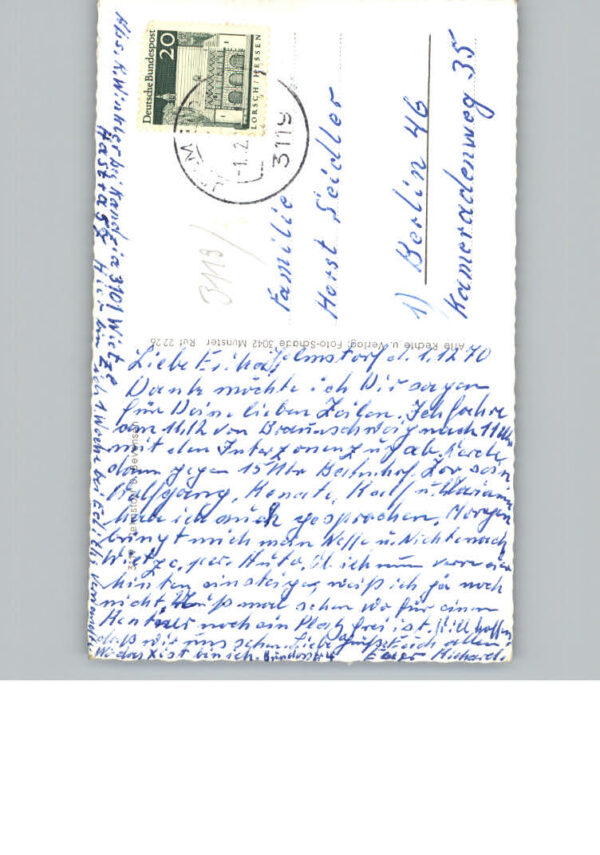 Deutsche Bundespost
20
LORSCH / HESSEN
3119
-1.2
3119/
Familie
Horst Seidler
1) Berlin 46
Kameradenweg 35
Alle Rechte u. Verlag: Foto-Schade 3042 Munster Ruf 22 26
Abs. R. Winkler bei 3101 Wietze
Hier bin ich 1. Woche bei
Liebe Erika, d. 1.12.70
Dank möchte ich Dir sagen
für Deine lieben Zeilen. Ich fahre
am 11.12 von Braunschweig nach 11 Uhr
mit den Interzonenzug ab. Werde
dann gegen 15 Uhr Bahnhof Zoo sein
Wolfgang, Renate, Ralf u. Mariann
hab ich auch gesprochen. Morgen
bringt mich mein Neffe u. Nichte nach
Wietze, per Auto. Ob ich nun vorn oder
hinten einsteige, weiß ich ja noch
nicht. Muß mal sehen wo für einen
Rentner noch ein Platz frei ist. Will hoffen
daß wir uns sehen. Liebe Grüße Euch allen
Wo das X ist bin ich. Euer Richard.